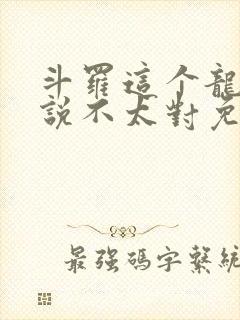 斗羅這个龍
說不太對免
最強碼字繫統